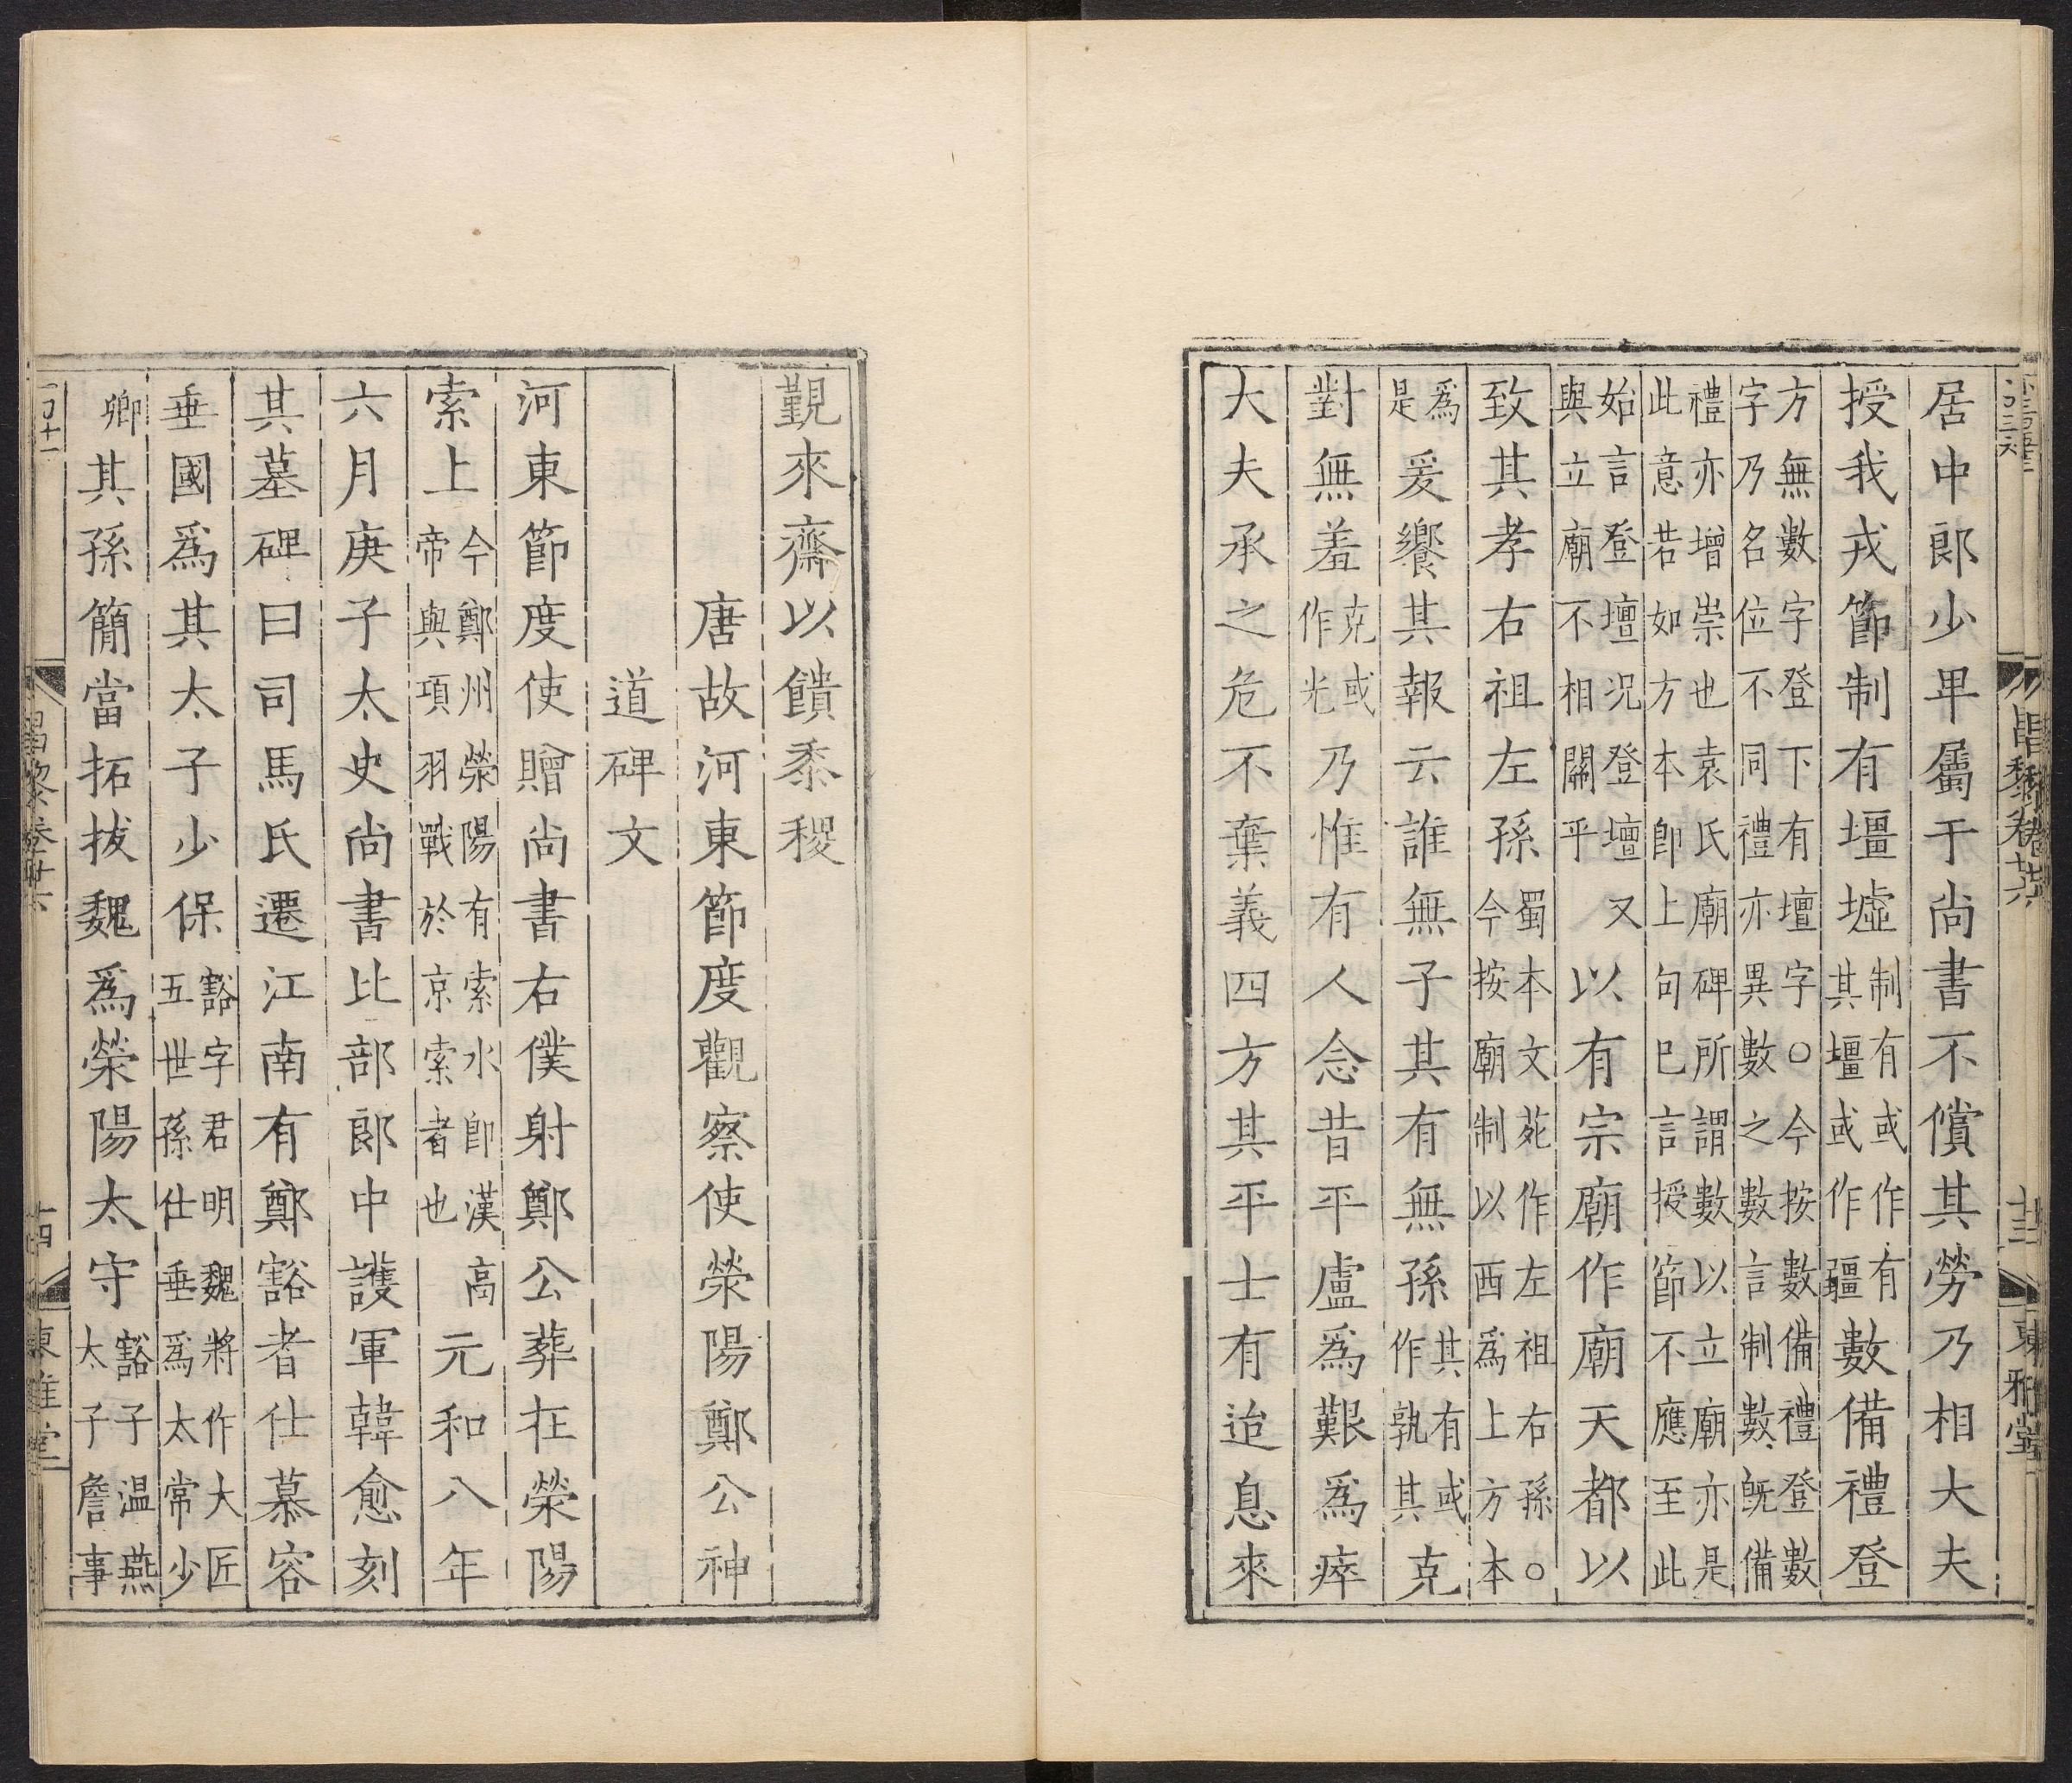 昌黎卷廿六　廿三　東雅堂
居中郎少卑屬于尚書不償其勞乃相大夫
授我戎節制有壃墟制有或作有其壃或作疆數備禮登
方無數字登下有壇字○今按數備禮登數
字乃名位不同禮亦異數之數數言制數既備
禮亦增崇也袁氏廟碑所謂數以立廟亦是
此意若如方本即上句已言授節不應至此
始言登壇况登壇又與立廟不相關乎以有宗廟作廟天都以
致其孝右祖左孫蜀本文苑作左祖右孫○今按廟制以西爲上方本
爲是爰饗其報云誰無子其有無孫其有或作孰其克
對無羞克或作光乃惟有人念昔平盧爲艱爲瘁
大夫承之危不棄義四方其平士有迨息來
覲來齋以饋黍稷
唐故河東節度觀察使滎陽鄭公神
道碑文
河東節度使贈尚書右僕射鄭公葬在滎陽
索上今鄭州滎陽有索水即漢高帝與項羽戰於京索者也元和八年
六月庚子太史尚書比部郎中護軍韓愈刻
其墓碑曰司馬氏遷江南有鄭豁者仕慕容
垂國爲其太子少保豁字君明魏將作大匠五世孫仕垂爲太常少
卿其孫簡當拓拔魏爲滎陽太守豁子温燕太子詹事
昌黎卷廿六　廿四　東雅堂